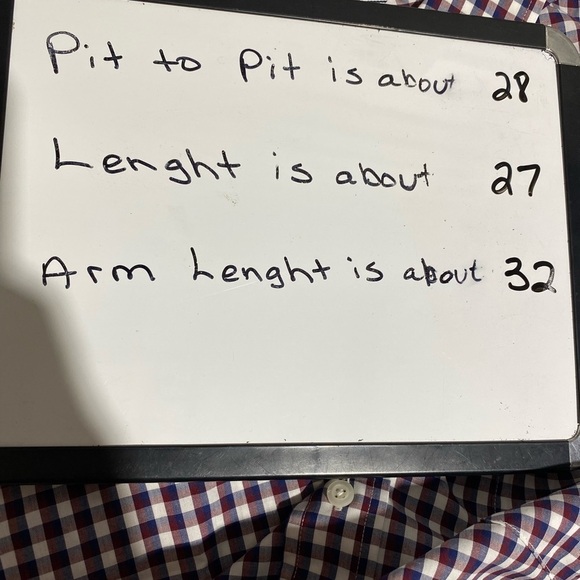 Pit to Pit is about 28
Lenght is about 27
Arm Lenght is about 32